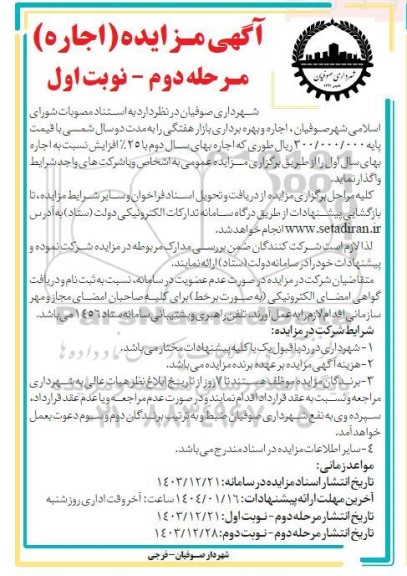 آگهی مـزایده (اجاره)
مـرحله دوم - نوبت اول
شهرداری صوفیان
شهــرداری صوفیان در نظر دارد به استناد مصوبات شورای
اسلامی شهر صوفیان، اجاره و بهره برداری بازار هفتگی را به مدت دو سال شمسی با قیمت
پایه ۳۰۰/۰۰۰/۰۰۰ ریال طوری که اجاره بهای سال دوم با ۲۵٪ افزایش نسبت به اجاره
بهای سال اول را از طریق برگزاری مـزایده عمومی به اشخاص و یا شرکت های واجد شرایط
واگذار نماید.
کلیه مراحل برگزاری مزایده از دریافت و تحویل اسناد فراخوان و سایر شرایط مزایده، تا
بازگشایی پیشنهادات از طریق درگاه سامانه تدارکات الکترونیکی دولت (ستاد) به آدرس
www.setadiran.ir انجام خواهد شد.
لذا لازم است شرکت کنندگان ضمن بررسی مدارک مربوطه در مزایده شرکت نموده و
پیشنهادات خود را در سامانه دولت (ستاد) ارائه نمایند.
متقاضیان شرکت در مزایده در صورت عدم عضویت در سامانه، نسبت به ثبت نام و دریافت
گواهی امضای الکترونیکی (به صورت بر خط) برای کلیه صاحبان امضای مجاز و مهر
سازمانی اقدام لازم را به عمل آورند. تلفن راهبری و پشتیبانی سامانه ستاد ۱۴۵۶ می باشد.
شرایط شرکت در مزایده:
۱- شهرداری در رد یا قبول یک یا کلیه پیشنهادات مختار می باشد.
۲- هزینه آگهی مزایده بر عهده برنده مزایده می باشد.
۳- برنـدگان مزایده موظف هستند تا ۷ روز از تاریخ ابلاغ نظر هیات عالی به شهرداری
مراجعه و نسبت به عقد قرارداد اقدام نمایند و در صورت عدم مراجعه و یا عدم عقد قرارداد،
سپرده وی به نفع شهرداری صوفیان ضبط و به ترتیب برندگان دوم و سوم دعوت بعمل
خواهد آمد.
۴- سایر اطلاعات مزایده در اسناد مندرج می باشد.
مواعد زمانی:
تاریخ انتشار اسناد مزایده در سامانه: ۱۴۰۳/۱۲/۲۱
آخرین مهلت ارائه پیشنهادات: ۱۴۰۴/۰۱/۱۶ ساعت: آخر وقت اداری روز شنبه
تاریخ انتشار مرحله دوم - نوبت اول: ۱۴۰۳/۱۲/۲۱
تاریخ انتشار مرحله دوم - نوبت دوم: ۱۴۰۳/۱۲/۲۸
شهردار صوفیان - فرجی